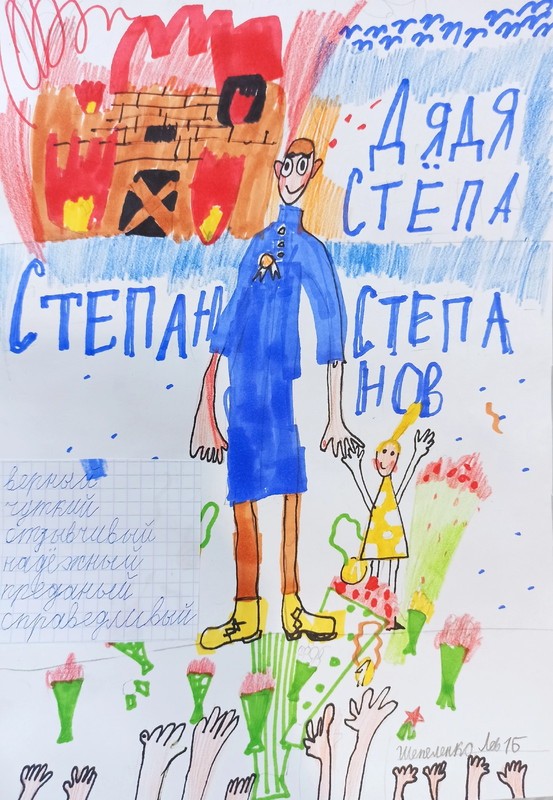 ДЯДЯ
СТЁПА
СТЕПАН СТЕПА
НОВ
верный
чуткий
отзывчивый
надёжный
преданый
справедливый
Шепеленко Лев 1Б